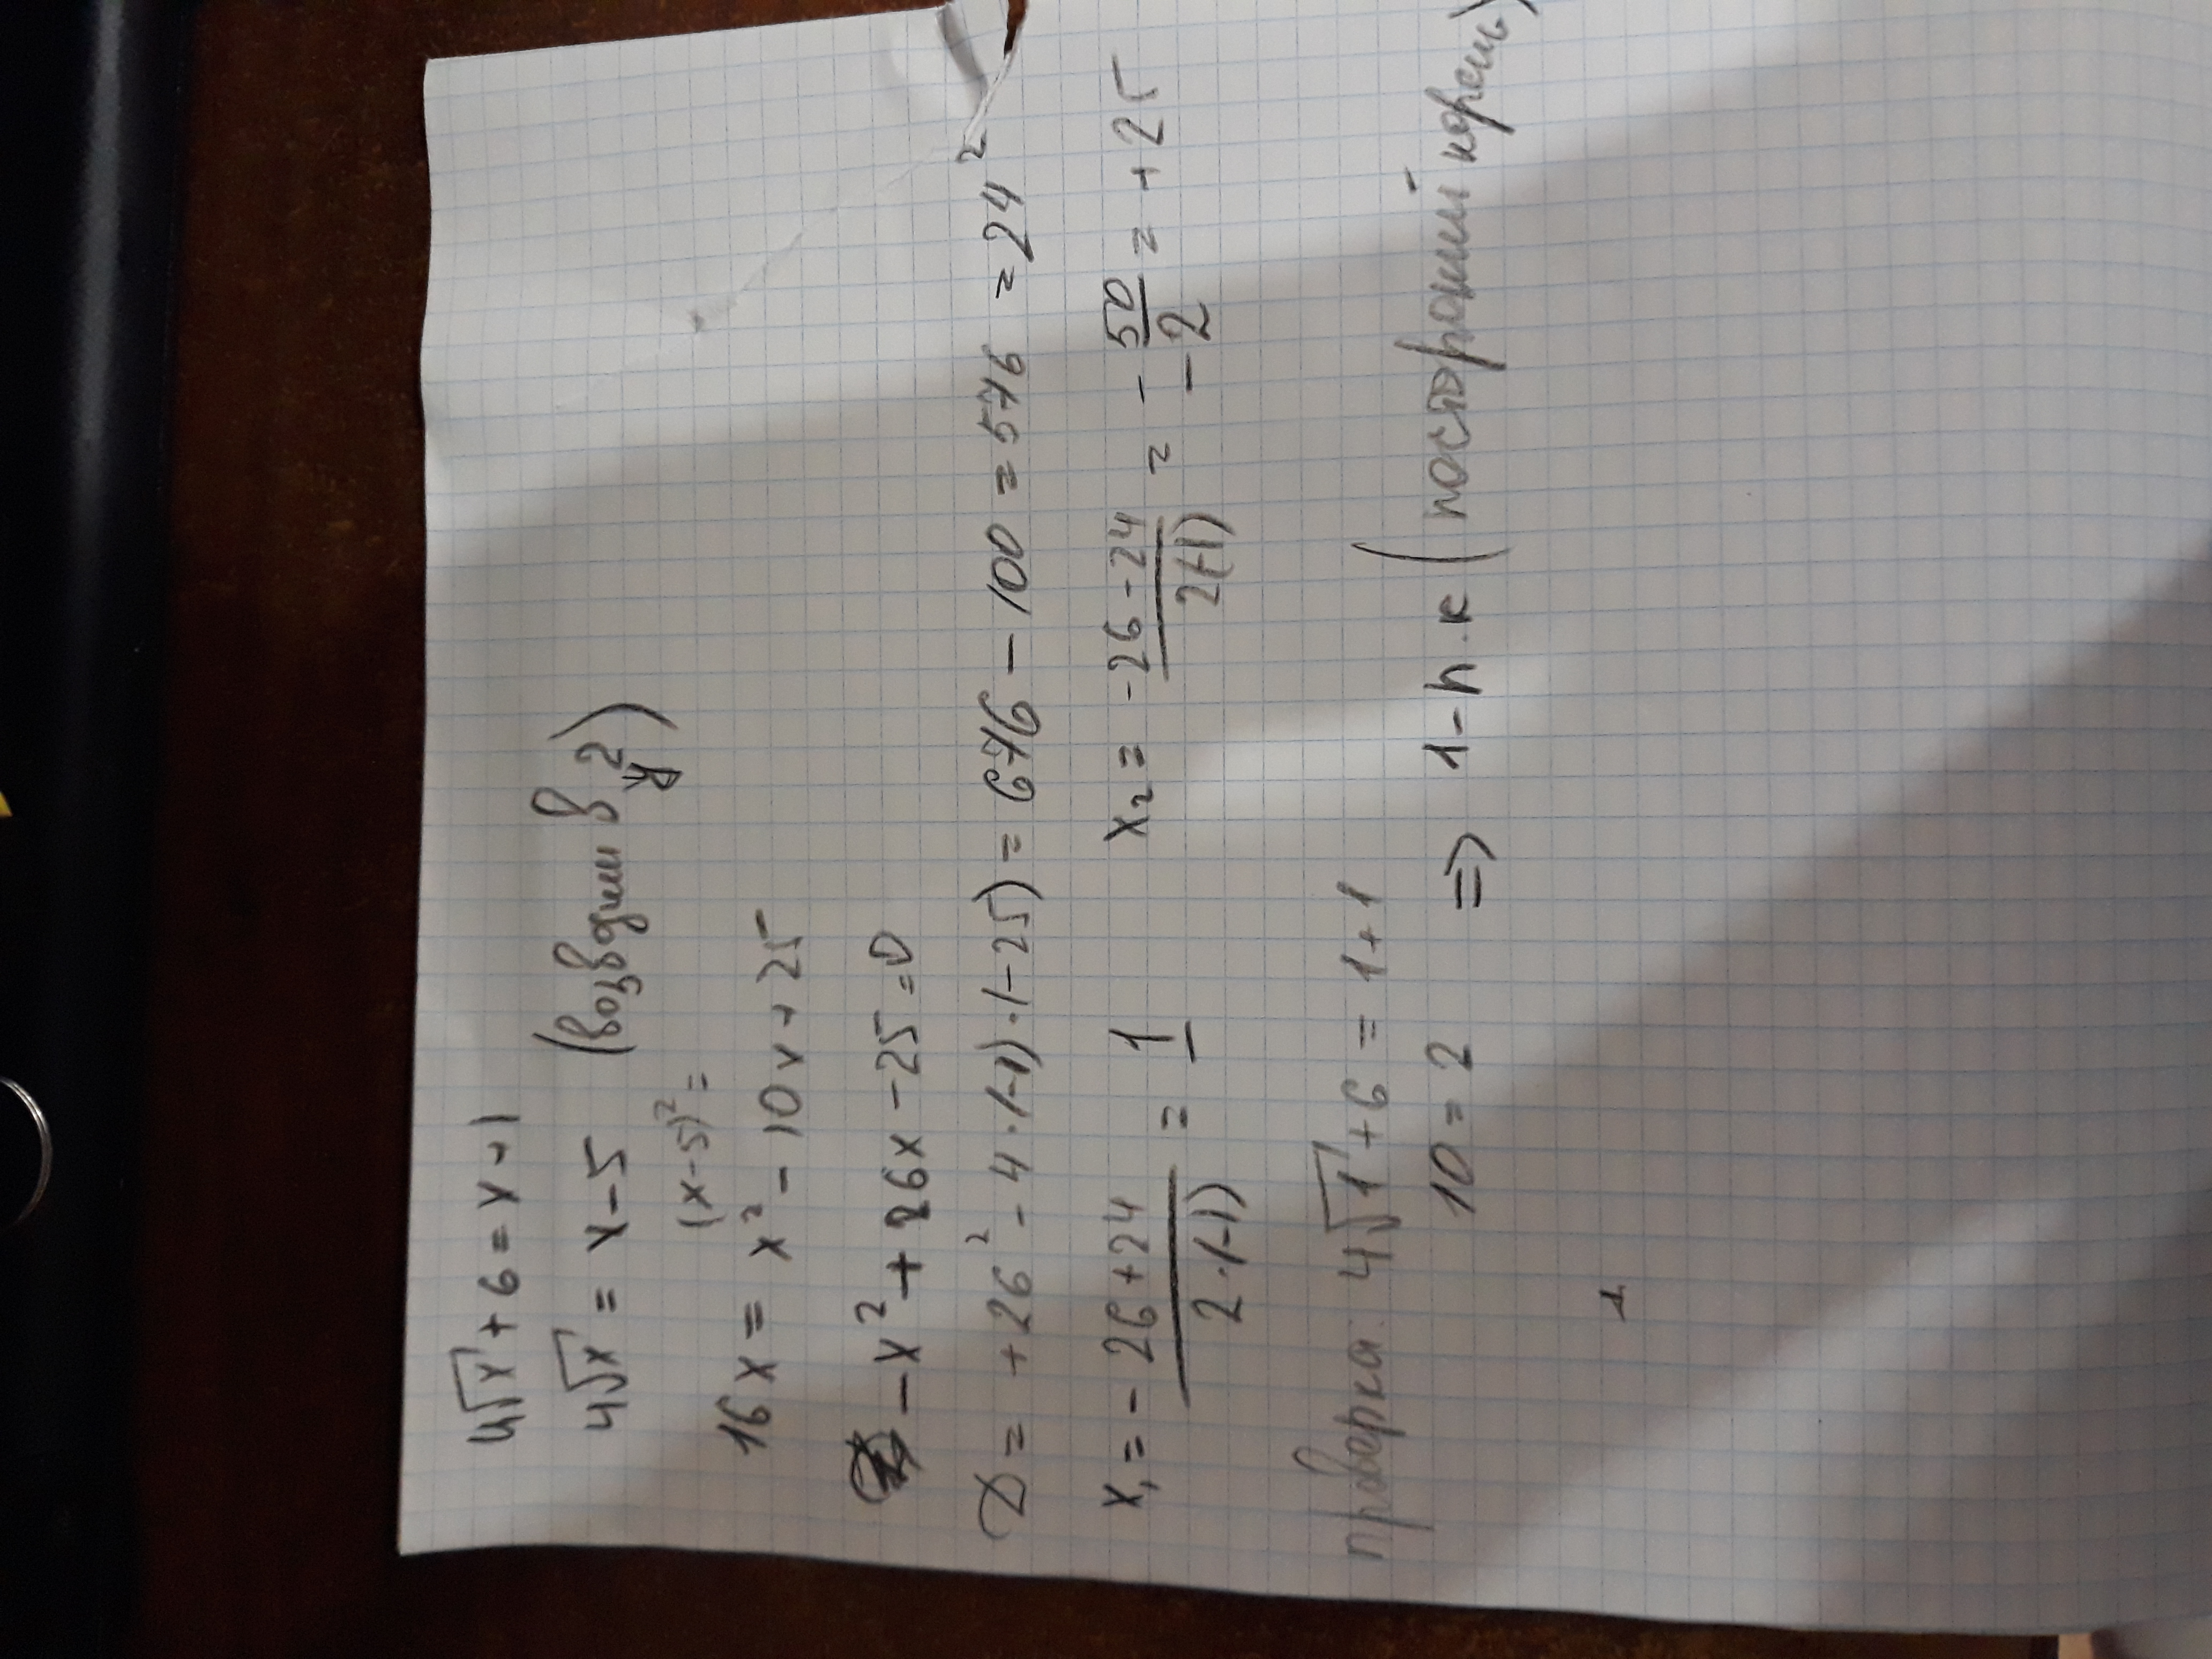 4√x + 6 = x + 1
4√x = x - 5 (возводим в ²)
(x-5)² =
16x = x² - 10x + 25
-x² + 26x - 25 = 0
D = +26² - 4·(-1)·(-25) = 676 - 100 = 576 = 24²
x₁ = (-26+24)/(2·(-1)) = 1 x₂ = (-26-24)/(2(-1)) = -50/-2 = +25
проверка: 4√1 + 6 = 1+1
10 = 2 => 1 - п.к (посторонний корень)
1